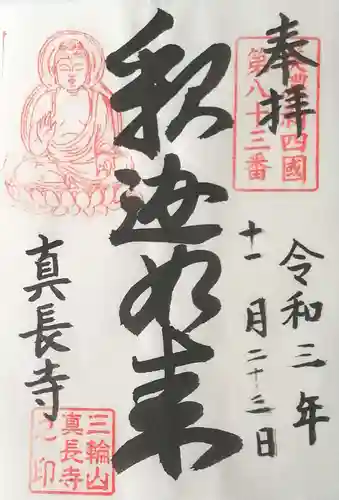 奉拝
第八十三番
四國
令和三年
十一月二十三日
釈迦如来
真長寺
三輪山
真長寺
之印